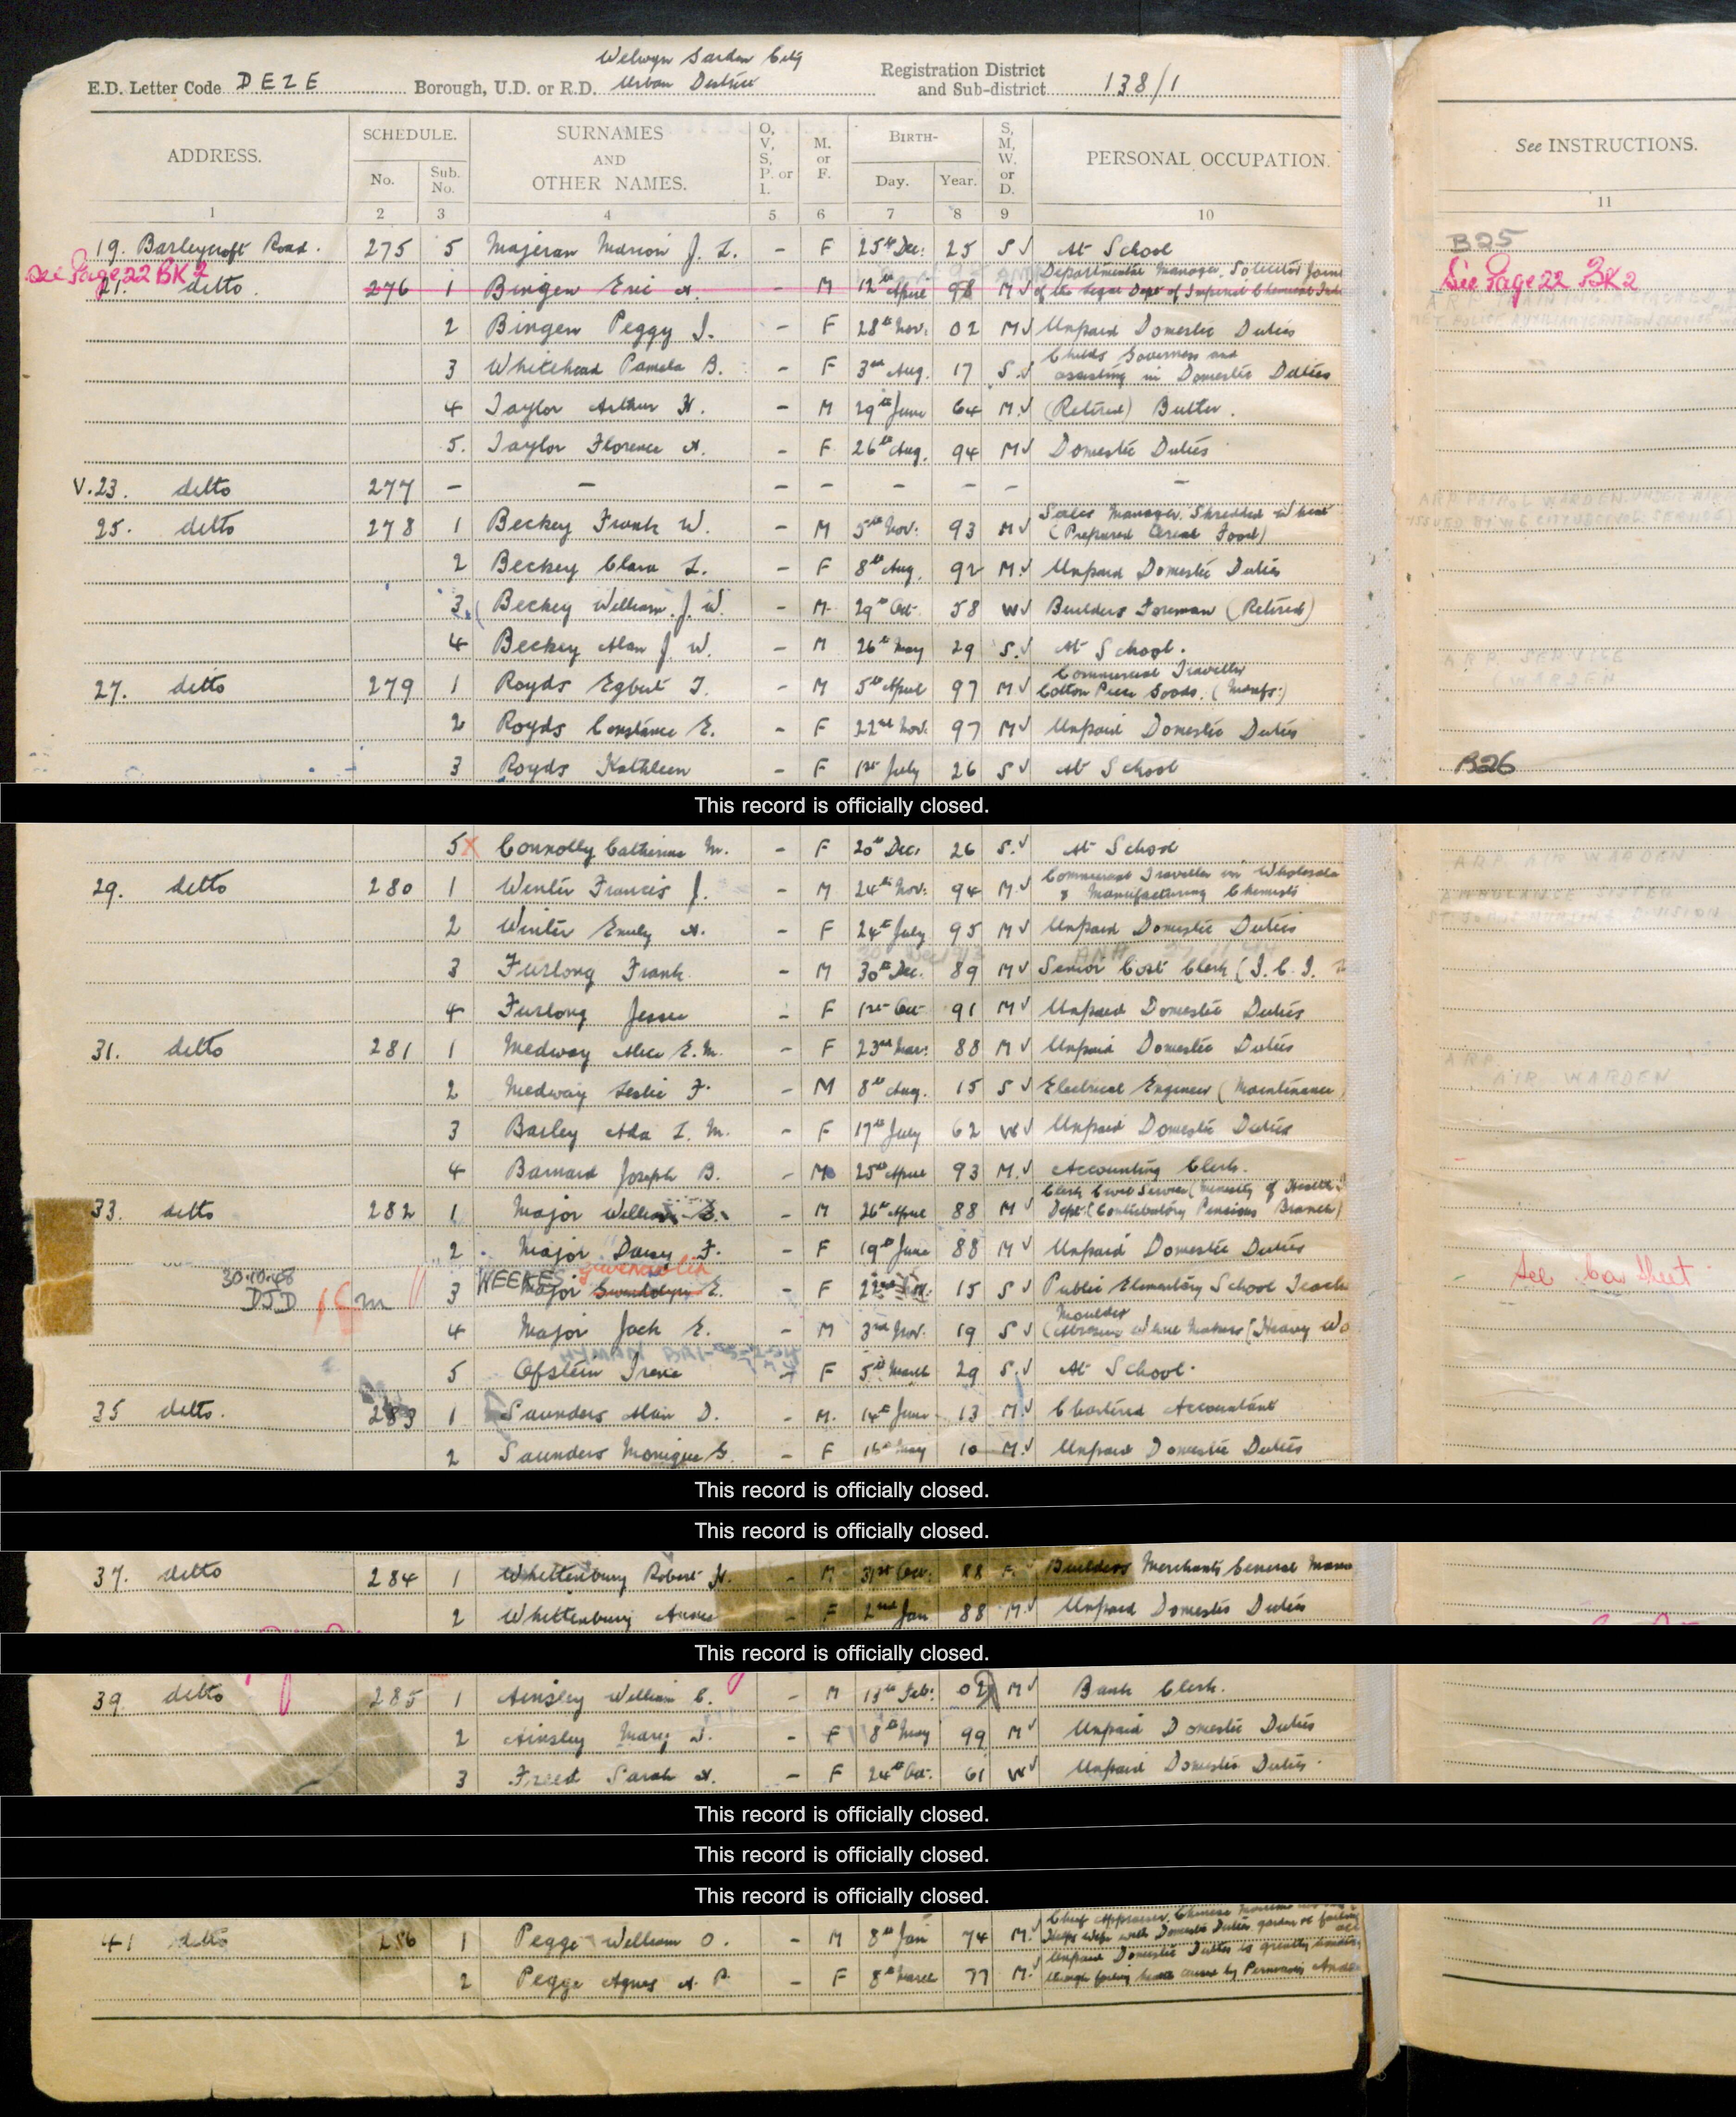 Welwyn Garden City
E.D. Letter Code DEZE Borough, U.D. or R.D. Urban District Registration District and Sub-district 138/1
ADDRESS. SCHEDULE. No. Sub. No. SURNAMES AND OTHER NAMES. O, V, S, P, or I. M. or F. BIRTH- Day. Year. S, M, W, or D. PERSONAL OCCUPATION. See INSTRUCTIONS.
1 2 3 4 5 6 7 8 9 10 11
19. Barleycroft Road. 275 5 Majeran Marion J. L. - F 25th Dec: 25 S At School B25
See Page 22 BK 2 See Page 22 BK 2
21. ditto. 276 1 Bingen Eric A. - M 12th April 98 M Departmental Manager. Solicitor Joint of the Legal Dept of Imperial Chemical
2 Bingen Peggy J. - F 28th Nov: 02 M Unpaid Domestic Duties
3 Whitehead Pamela B. - F 3rd Aug. 17 S Childs Governess and assisting in Domestic Duties
4 Taylor Arthur H. - M 29th June 64 M (Retired) Butler.
5. Taylor Florence A. - F 26th Aug. 94 M Domestic Duties
V.23. ditto 277 - - - - - - - -
25. ditto 278 1 Beckey Frank W. - M 5th Nov: 93 M Sales Manager. Shredded Wheat (Prepared Cereal Food)
2 Beckey Clara L. - F 8th Aug. 92 M Unpaid Domestic Duties
3. Beckey William. J. W. - M 29th Oct 58 W Builders Foreman (Retired)
4 Beckey Alan J. W. - M 26th May 29 S. At School.
ARP SERVICE
27. ditto 279 1 Royds Egbert T. - M 5th April 97 M Commercial Traveller Cotton Piece Goods. (Manfs:) WARDEN
2 Royds Constance E. - F 22nd Nov: 97 M Unpaid Domestic Duties
3 Royds Kathleen - F 1st July 26 S At School B26
This record is officially closed.
5 Connolly Catherine M. - F 20th Dec: 26 S. At School
A.R.P. AIR WARDEN
29. ditto 280 1 Winter Francis J. - M 24th Nov: 94 M. Commercial Traveller in Wholesale & Manufacturing Chemists
2 Winter Emily A. - F 24th July 95 M Unpaid Domestic Duties
3 Furlong Frank - M 30th Dec. 89 M Senior Cost Clerk (I. C. I.
4 Furlong Jessie - F 1st Oct 91 M Unpaid Domestic Duties
31. ditto 281 1 Medway Alice E. M. - F 23rd Mar: 88 M Unpaid Domestic Duties
2 Medway Leslie F. - M 8th Aug. 15 S Electrical Engineer (Maintenance) ARP AIR WARDEN
3 Barley Ada L. M. - F 17th July 62 W Unpaid Domestic Duties
4 Barnard Joseph B. - M 25th April 93 M. Accounting Clerk.
33. ditto 282 1 Major William E. - M 26th April 88 M Clerk Civil Service (Ministry of Health) Dept: (Contributory Pensions Branch)
2 Major Daisy F. - F 19th June 88 M Unpaid Domestic Duties
30.10.48 DJD WEEKES Gwendolin See
3 Major Gwendolyn E. - F 22nd 15 S Public Elementary School Teacher
4 Major Jack E. - M 3rd Nov. 19 S Moulder (Abrasive Wheel Makers [Heavy Wo
5 Ofstein Irene - F 5th March 29 S. At School.
35 ditto. 283 1 Saunders Alan D. - M. 14th June 13 M Chartered Accountant
2 Saunders Monique G. - F 16th May 10 M. Unpaid Domestic Duties
This record is officially closed.
This record is officially closed.
37. ditto 284 1 Whittenbury Robert H. - M 31st Oct. 88 Builders Merchants General Mana
2 Whittenbury Annie - F 2nd Jan 88 M. Unpaid Domestic Duties
This record is officially closed.
39. ditto 285 1 Ainsley William C. - M 13th Feb: 02 M Bank Clerk.
2 Ainsley Mary J. - F 8th May 99 M Unpaid Domestic Duties
3 Freed Sarah A. - F 24th Oct. 61 W Unpaid Domestic Duties.
This record is officially closed.
This record is officially closed.
This record is officially closed.
41 ditto 286 1 Pegge William O. - M 8th Jan 74 M. Chief Appraiser. Chinese
Helps Wife with Domestic Duties garden
2 Pegge Agnes A. P. - F 8th March 77 M. Unpaid Domestic Duties is greatly
through failing caused by Pernicious